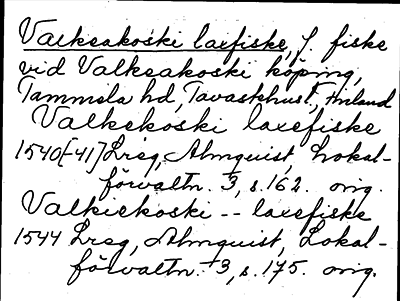 Valkeakoski laxfiske, f. fiske
vid Valkeakoski köping,
Tammela hd, Tavastehusl., Finland
Valkekoski laxefiske
1540[-41] Lreg, Almquist, Lokal-
förvaltn. 3, s. 162. orig.
Valkiekoski -- laxefiske
1544 Lreg, Almquist, Lokal-
förvaltn. 3, s. 175. orig.